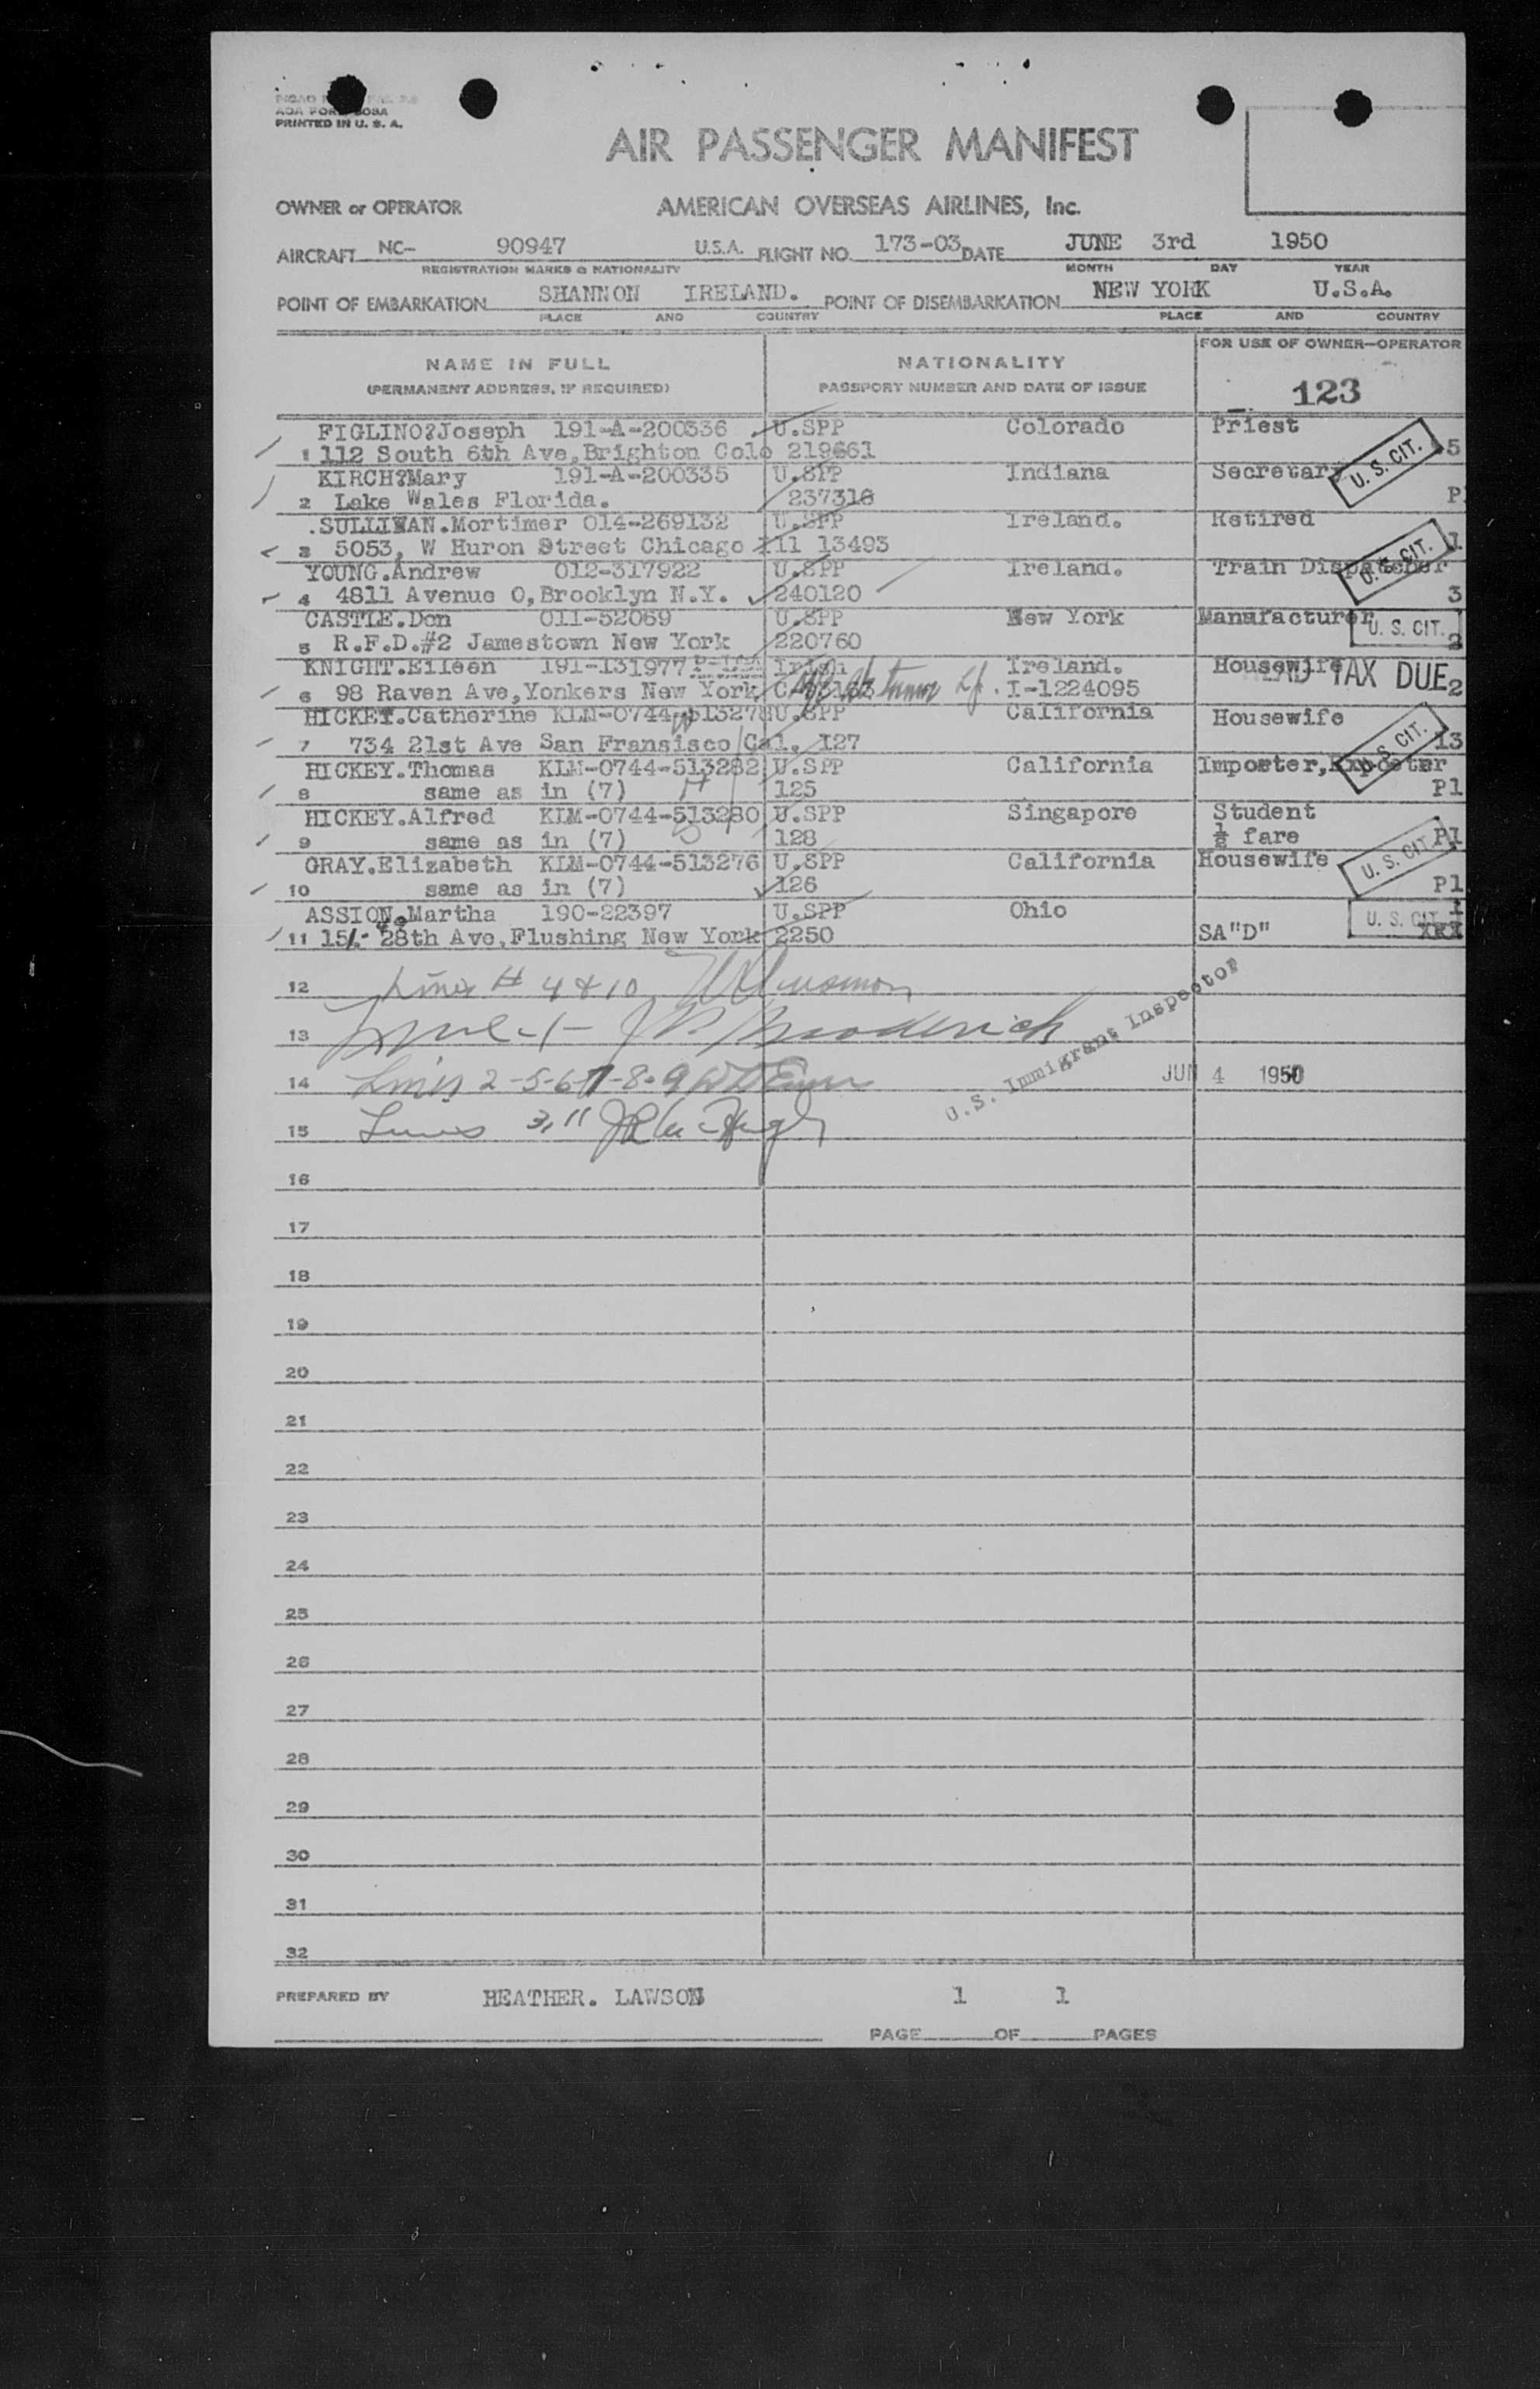 AOA FORM 508A
PRINTED IN U. S. A.
AIR PASSENGER MANIFEST
OWNER or OPERATOR AMERICAN OVERSEAS AIRLINES, Inc.
AIRCRAFT NC- 90947 U.S.A. FLIGHT NO. 173-03 DATE JUNE 3rd 1950
REGISTRATION MARKS & NATIONALITY MONTH DAY YEAR
POINT OF EMBARKATION SHANNON IRELAND. POINT OF DISEMBARKATION NEW YORK U.S.A.
PLACE AND COUNTRY PLACE AND COUNTRY
NAME IN FULL NATIONALITY FOR USE OF OWNER—OPERATOR
(PERMANENT ADDRESS, IF REQUIRED) PASSPORT NUMBER AND DATE OF ISSUE 123
FIGLINO?Joseph 191-A-200336 U.SPP Colorado Priest
1 112 South 6th Ave,Brighton Colo 219661 5
KIRCH?Mary 191-A-200335 U.SPP Indiana Secretary U. S. CIT.
2 Lake Wales Florida. 237318 P
.SULLIVAN.Mortimer 014-269132 U.SPP Ireland. Retired
3 5053, W Huron Street Chicago Ill 13493 1
YOUNG.Andrew 012-317922 U.SPP Ireland. Train Dispatcher U. S. CIT.
4 4811 Avenue O,Brooklyn N.Y. 240120 3
CASTLE.Don 011-52069 U.SPP New York Manufacturer U. S. CIT.
5 R.F.D.#2 Jamestown New York 220760 2
KNIGHT.Eileen 191-131977 Irish Ireland. Housewife HEAD TAX DUE
6 98 Raven Ave,Yonkers New York I-1224095 2
HICKEY.Catherine KLM-0744-513278 U.SPP California Housewife
7 734 21st Ave San Fransisco Cal. 127 U. S. CIT. 13
HICKEY.Thomas KLM-0744-513282 U.SPP California Importer,Exporter
8 same as in (7) 125 P1
HICKEY.Alfred KLM-0744-513280 U.SPP Singapore Student
9 same as in (7) 128 ½ fare P1
GRAY.Elizabeth KLM-0744-513276 U.SPP California Housewife U. S. CIT.
10 same as in (7) 126 P1
ASSION.Martha 190-22397 U.SPP Ohio
11 28th Ave,Flushing New York 2250 SA"D" U. S. CIT.
12 Lines # 4 & 10
13 Broderick U.S. Immigrant Inspector
14 Lines 2-5-6-7-8-9 JUN 4 1950
15 Lines 3, 11
16
17
18
19
20
21
22
23
24
25
26
27
28
29
30
31
32
PREPARED BY HEATHER. LAWSON 1 1
PAGE OF PAGES